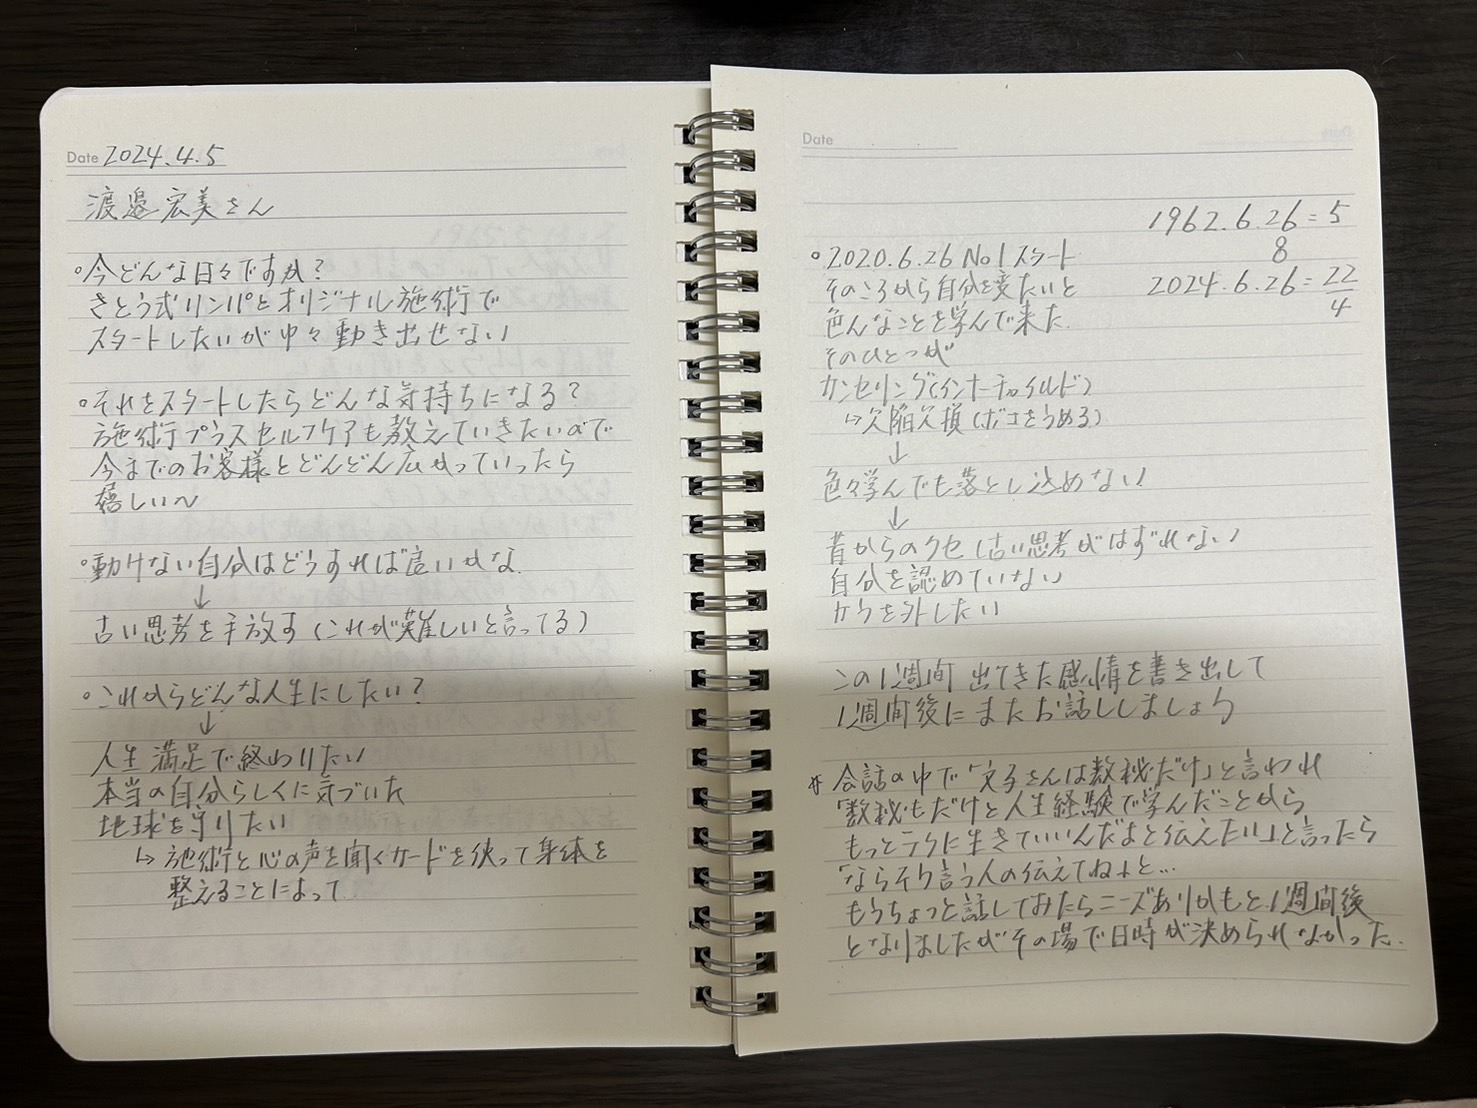 Date 2024.4.5
渡邉宏美さん
◦今どんな日々ですか?
さとう式リンパとオリジナル施術で
スタートしたいが中々動き出せない
◦それをスタートしたらどんな気持ちになる?
施術プラスセルフケアも教えていきたいので
今までのお客様とどんどん広がっていったら
嬉しい〜
◦動けない自分はどうすれば良いかな
↓
古い思考を手放す(これが難しいと言ってる)
◦これからどんな人生にしたい?
↓
人生満足で終わりたい
本当の自分らしくに気づいた
地球を守りたい
↳施術と心の声を聞くカードを使って身体を
整えることによって
Date
1962.6.26=5
8
◦2020.6.26 No1スタート
そのころから自分を変たいと
2024.6.26=22
4
色んなことを学んで来た.
そのひとつが
カンセリング(インナーチャイルド)
↳欠陥欠損(ボコをうめる)
↓
色々学んでも落とし込めない
↓
昔からのクセ(古い思考がはずれない)
自分を認めていない
カラを外したい
この1週間 出てきた感情を書き出して
1週間後にまたお話ししましょう
会話の中で「文子さんは数秘だけ」と言われ
「数秘もだけと人生経験で学んだことから
もっとラクに生きていいんだよと伝えたい」と言ったら
「ならそう言う人の伝えてね」と…
もうちょっと話してみたらニーズありかもと.1週間後
となりましたがその場で日時が決められなかった.